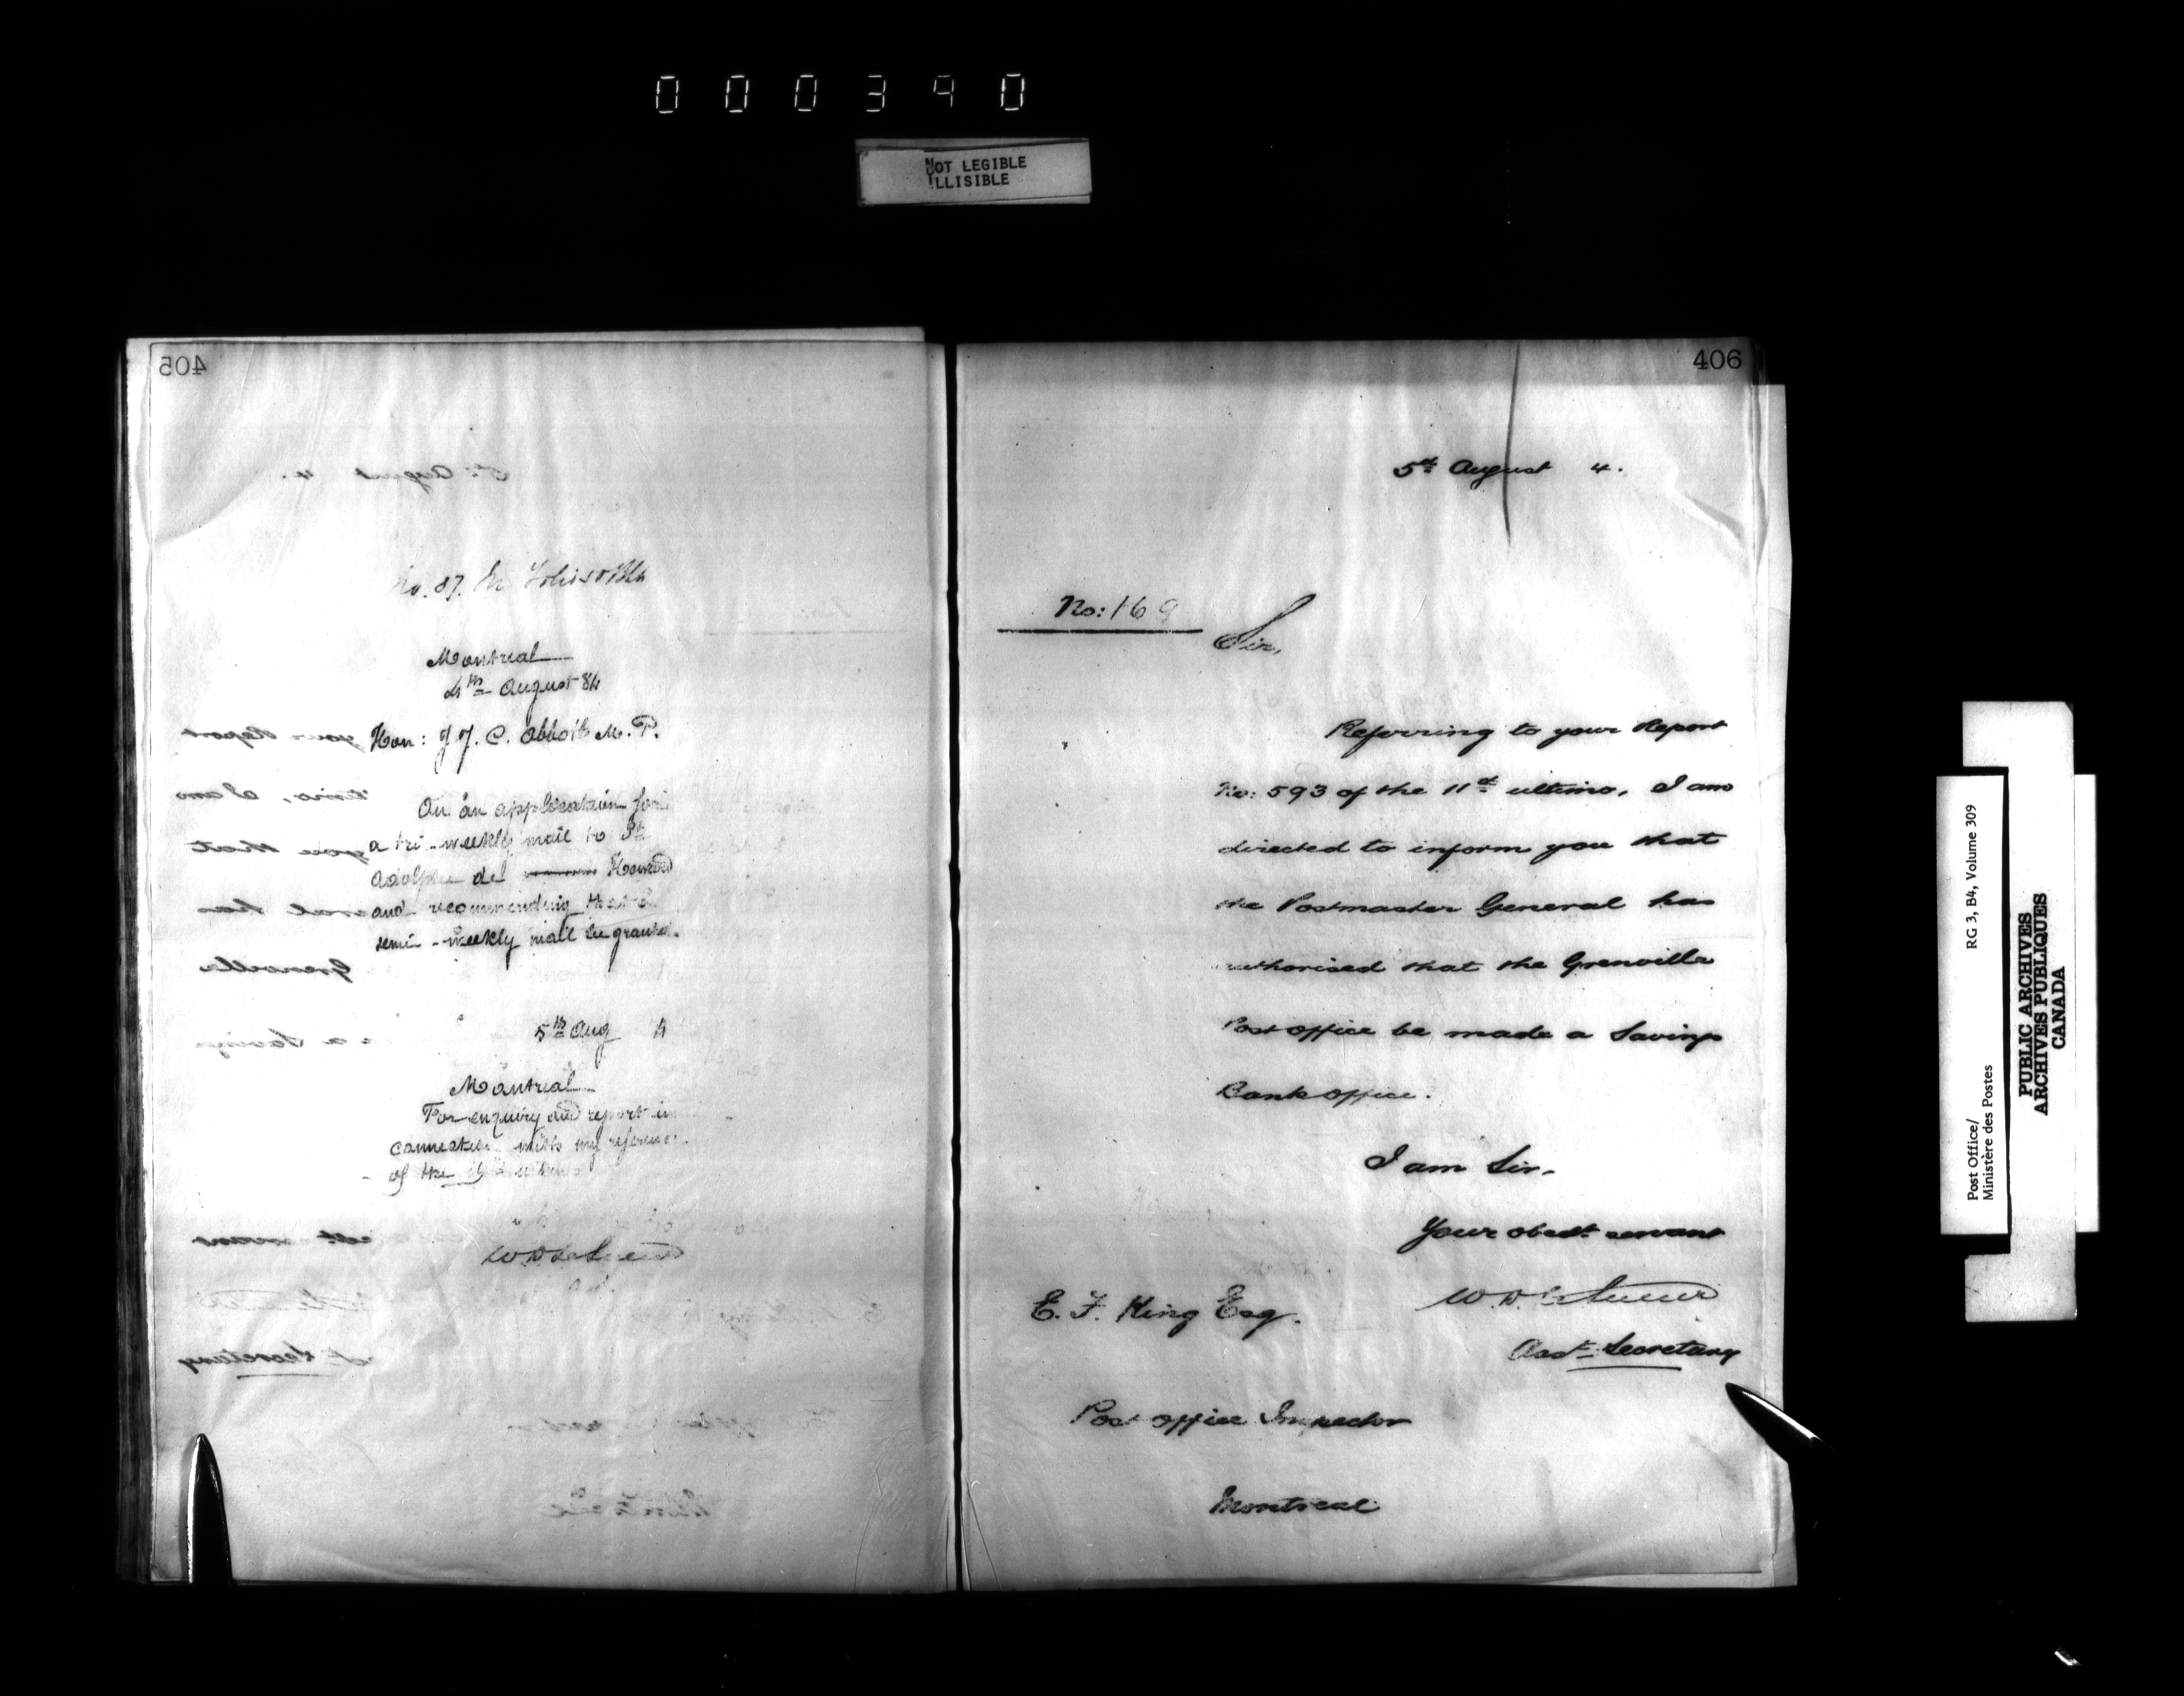 000390
NOT LEGIBLE
ILLISIBLE
405
No. 87.
Montreal
4th August 84
Hon: J. J. C. Abbott M. P.
On an application for
a tri-weekly mail to St
Adolphe de Howard
and recommending that a
semi-weekly mail be granted.
5th Aug 4
Montreal
For enquiry and report in
connection with my reference
of the
406
5th August 4.
No: 169
Sir,
Referring to your Report
No: 593 of the 11th ultimo, I am
directed to inform you that
the Postmaster General has
authorised that the Grenville
Post Office be made a Savings
Bank Office.
I am Sir.
Your obedt servant
W. D. LeSueur
Asst Secretary
E. F. King Esq.
Post Office Inspector
Montreal
Post Office/
Ministère des Postes
RG 3, B4, Volume 309
PUBLIC ARCHIVES
ARCHIVES PUBLIQUES
CANADA